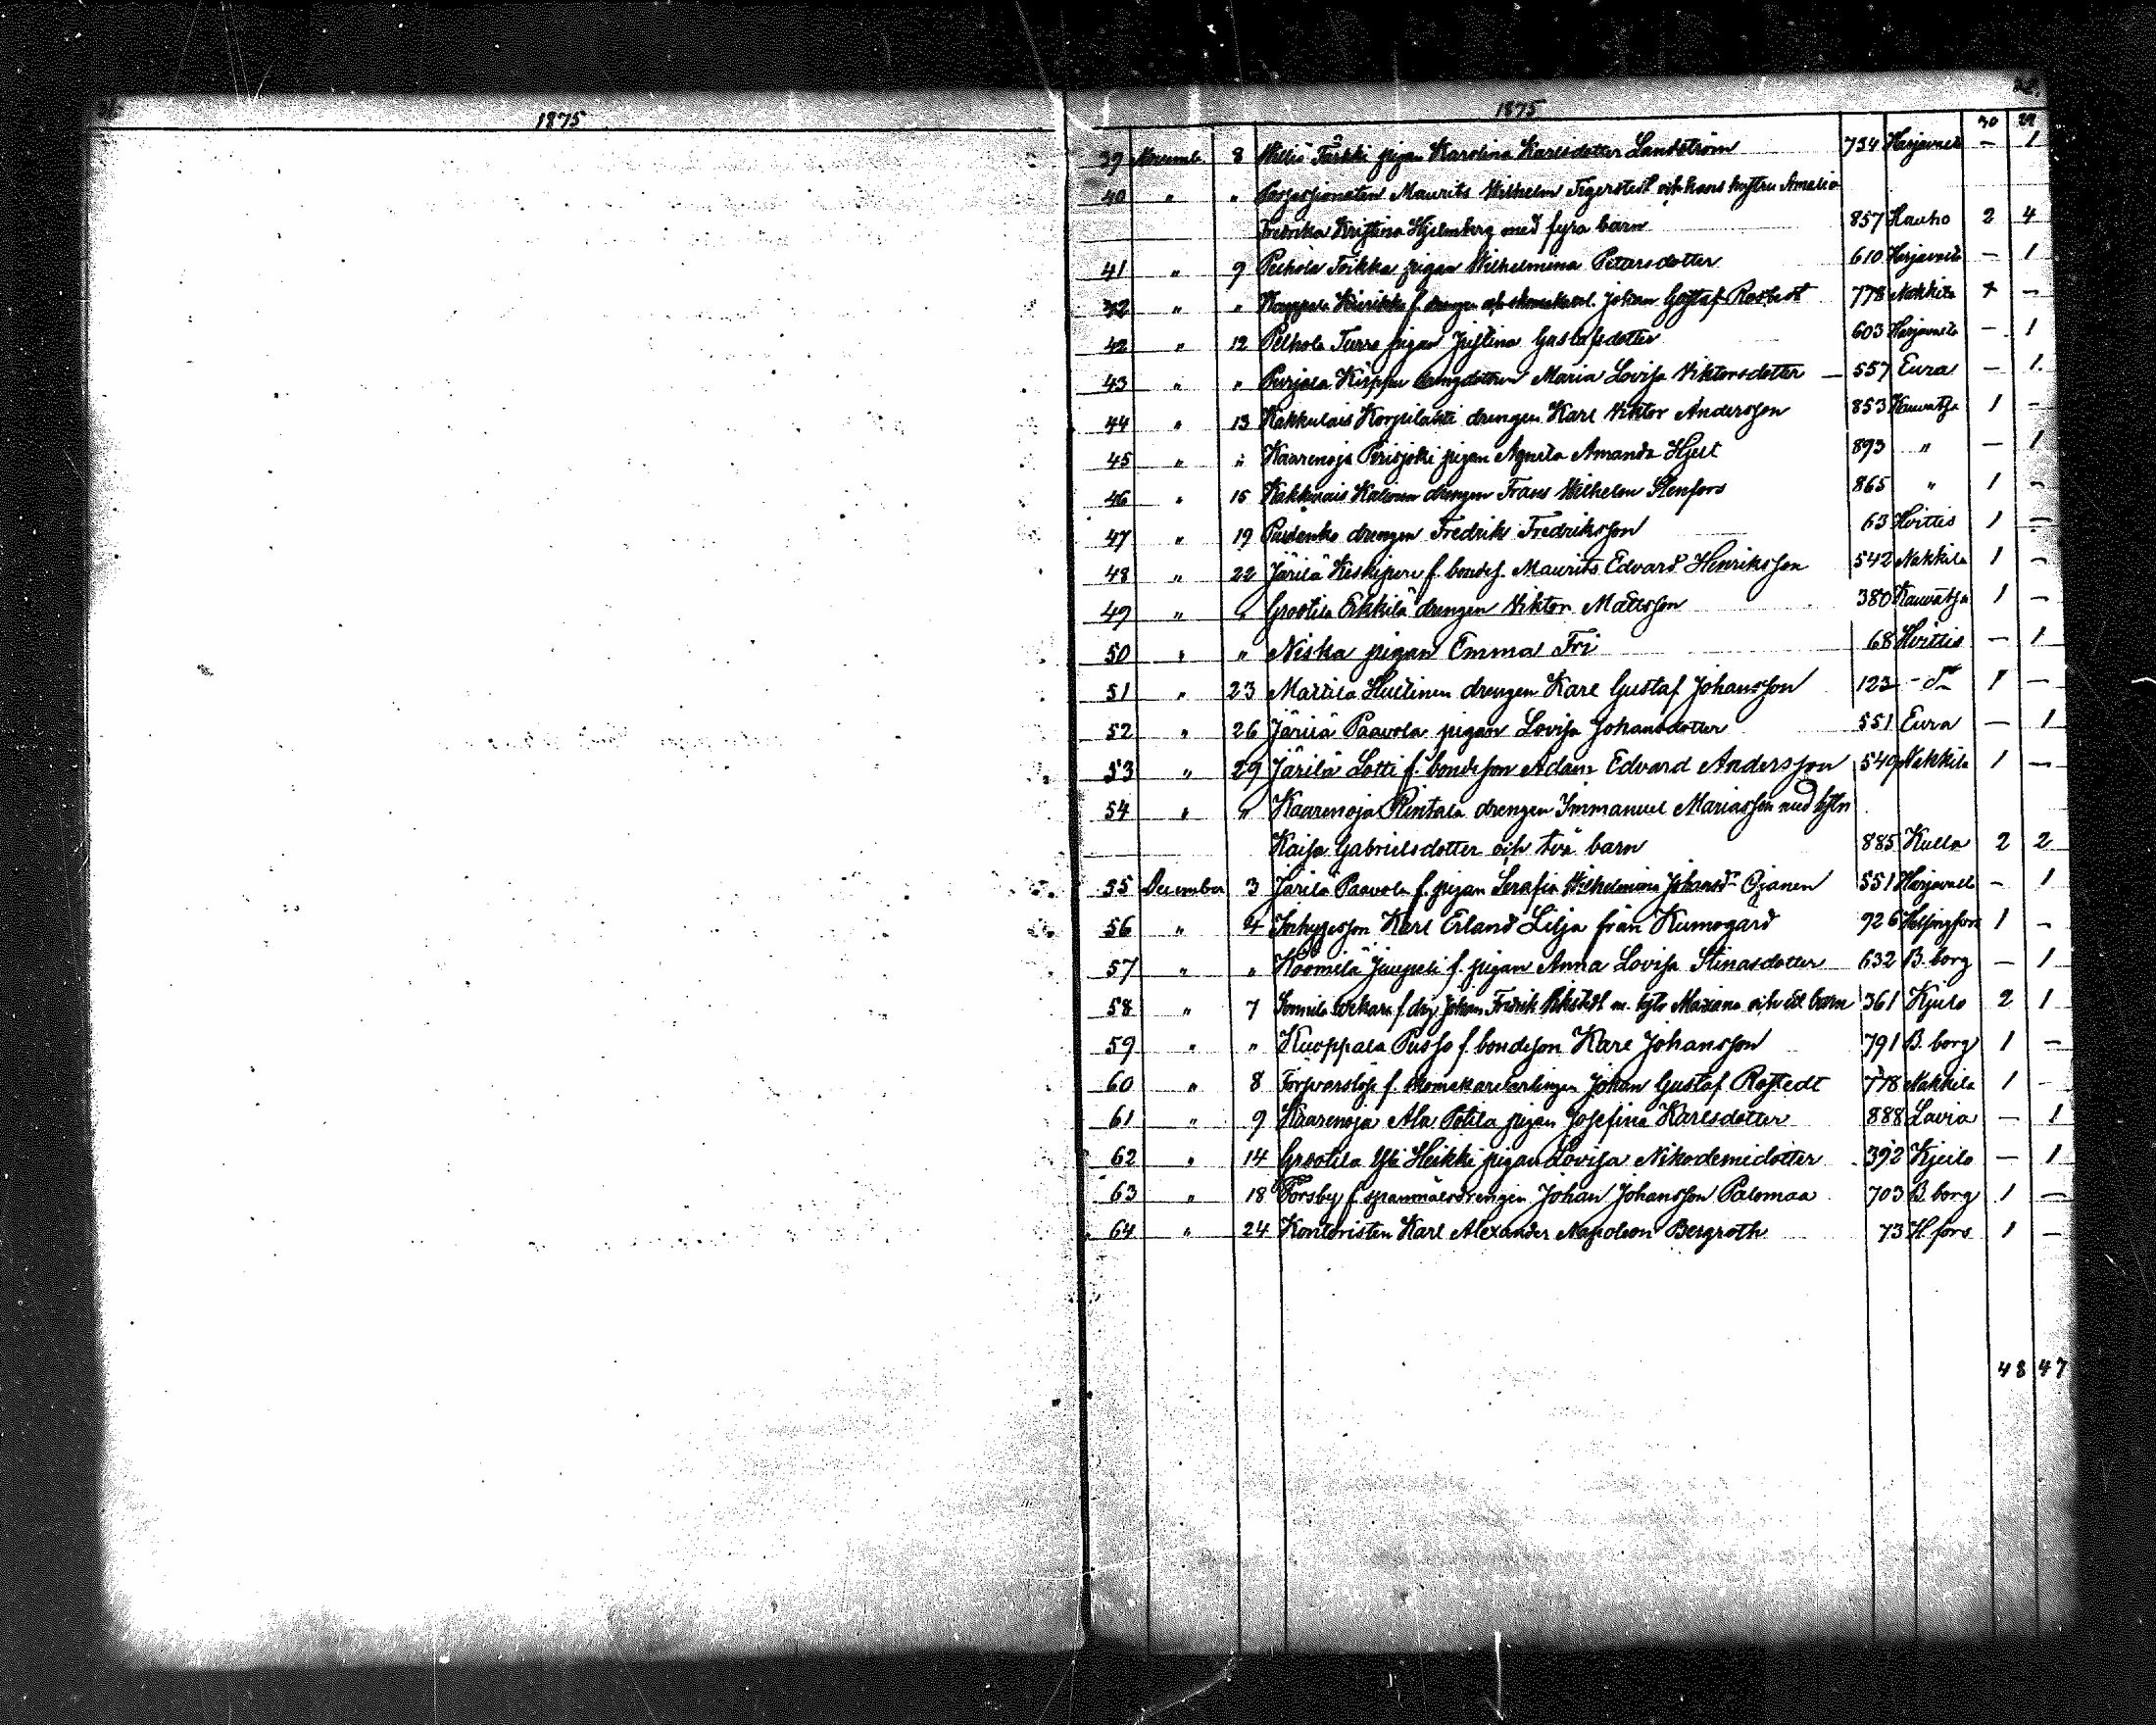 1875
1875
30 22
39 Novemb. 8 Pigan Karolina Karlsdotter Landström 734 Harjavalta — 1
40 " " Possessionaten Maurits Wilhelm Tigerstedt och hans hustru Amalia
Fredrika Kristina Hjelmberg med fyra barn 857 Hauho 2 4
41 " 9 Toikka pigan Wilhelmina Pettersdotter 610 Harjavalta — 1
" " f. drengen Johan Gustaf Rostedt 778 Nakkila —
42 " 12 Turra pigan Justina Gustafsdotter 603 Harjavalta — 1
43 " " Purjala Kirppu Maria Lovisa Viktorsdotter — 557 Eura — 1.
44 " 13 Kakkulais Korpilahti drengen Karl Viktor Andersson 853 Kauvatsa 1 —
45 " " Kaarenoja pigan Agneta Amanda Hjelt 893 " — 1
46 " 15 drengen Frans Wilhelm Stenfors 865 " 1 —
47 " 19 drengen Fredrik Fredriksson 63 Hvittis 1 —
48 " 22 Järilä Keskipere f. bondes. Maurits Edvard Henriksson 542 Nakkila 1 —
49 " " Grootila Erkkilä drengen Viktor Mattsson 380 Kauvatsa 1 —
50 " " Niska pigan Emma Fri 68 Hvittis — 1
51 " 23 Mattila Huilinen drengen Karl Gustaf Johansson 123 - do 1 —
52 " 26 Järilä Paavola pigan Lovisa Johansdotter 551 Eura — 1
53 " 29 Järilä Lotti f. bondeson Adam Edvard Andersson 549 Nakkila 1 —
54 " " Kaarenoja Rintala drengen Immanuel Mariasson med hstn
Kaisa Gabrielsdotter och två barn 885 Kulla 2 2
55 December 3 Järilä Paavola f. pigan Serafia Wilhelmina Johansdr Ojanen 551 Harjavalta — 1
56 " 4 Inhysesson Karl Erland Lilja från Kumogård 926 Helsingfors 1 —
57 " " Köömilä Jaupeli f. pigan Anna Lovisa Stinasdotter 632 B. borg — 1
58 " 7 f. drg Johan Fredrik m. hstr Mariana och ett barn 361 Kjulo 2 1
59 " " Kuoppala Pusso f. bondeson Karl Johansson 791 B. borg 1 —
60 " 8 Försvarslöse f. skomakarelärlingen Johan Gustaf Rostedt 778 Nakkila 1 —
61 " 9 Kaarenoja Ala Potila pigan Josefina Karlsdotter 888 Lavia — 1
62 " 14 Grootila Yli Heikki pigan Lovisa Nikodemidotter 392 Kjulo — 1
63 " 18 Forsby f. spannmålsdrengen Johan Johansson Palomaa 703 B. borg 1 —
64 " 24 Kontoristen Karl Alexander Napoleon Bergroth 73 H fors 1 —
48 47